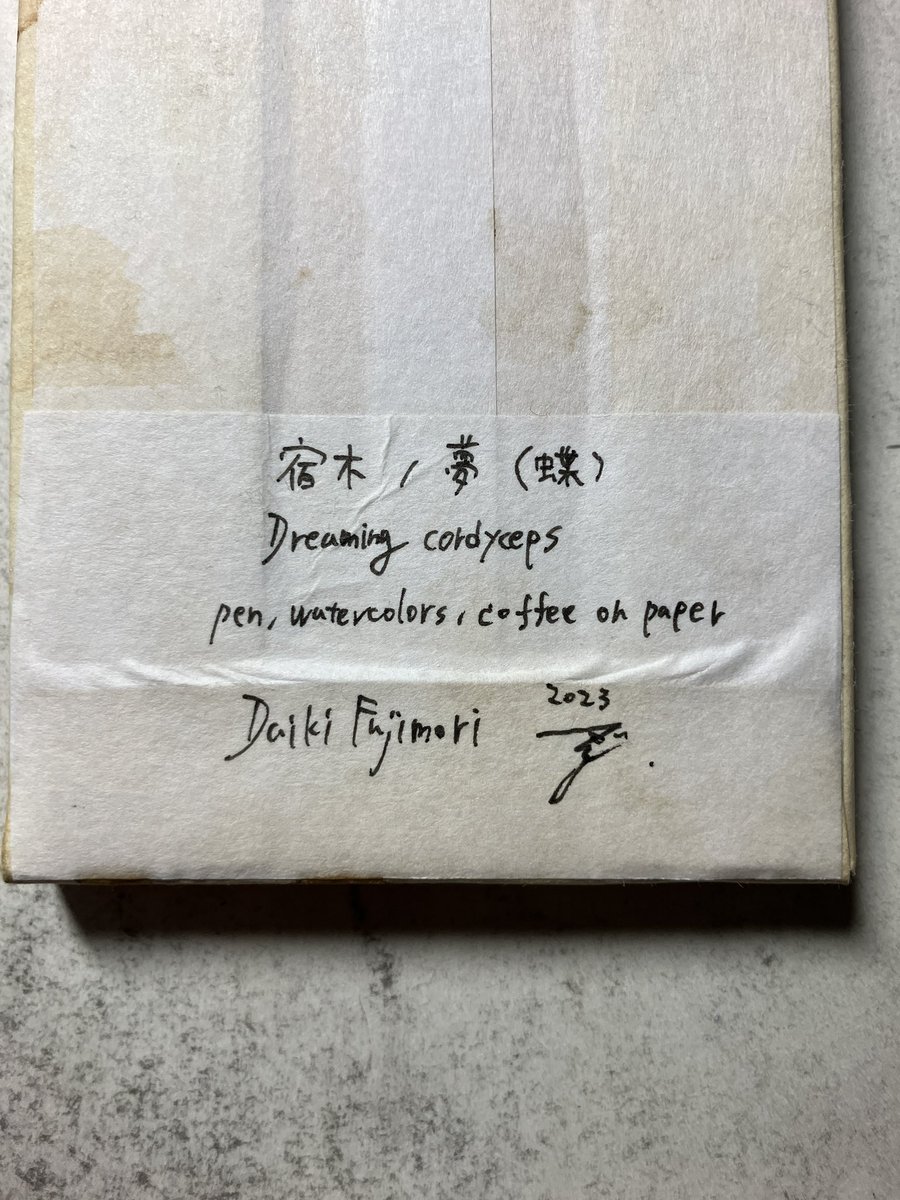 宿木 / 夢 (蝶)
Dreaming cordyceps
pen, watercolors, coffee on paper
2023
Daiki Fujimori